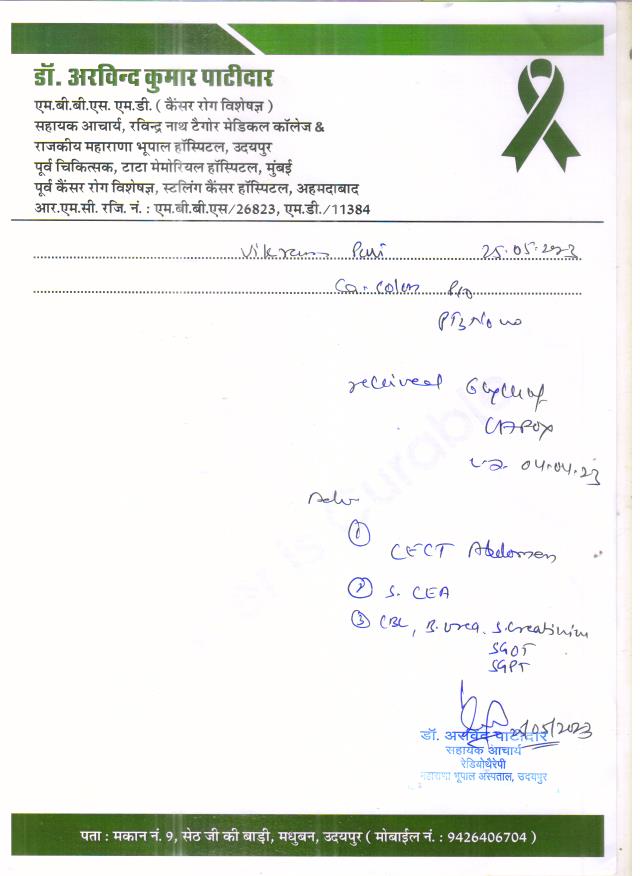 डॉ. अरविन्द कुमार पाटीदार
एम.बी.बी.एस. एम.डी. ( कैंसर रोग विशेषज्ञ )
सहायक आचार्य, रविन्द्र नाथ टैगोर मेडिकल कॉलेज &
राजकीय महाराणा भूपाल हॉस्पिटल, उदयपुर
पूर्व चिकित्सक, टाटा मेमोरियल हॉस्पिटल, मुंबई
पूर्व कैंसर रोग विशेषज्ञ, स्टलिंग कैंसर हॉस्पिटल, अहमदाबाद
आर.एम.सी. रजि. नं. : एम.बी.बी.एस/26823, एम.डी./11384
Vikram Puri 25.05.2023
Ca-colon
received
CAPOX
04.04.23
Adv
① CECT Abdomen
② S. CEA
③ CBC, B. urea. S. Creatinin
SGOT
SGPT
/05/2023
डॉ. अरविंद पाटीदार
सहायक आचार्य
रेडियोथैरेपी
महाराणा भूपाल अस्पताल, उदयपुर
पता : मकान नं. 9, सेठ जी की बाड़ी, मधुबन, उदयपुर ( मोबाईल नं. : 9426406704 )